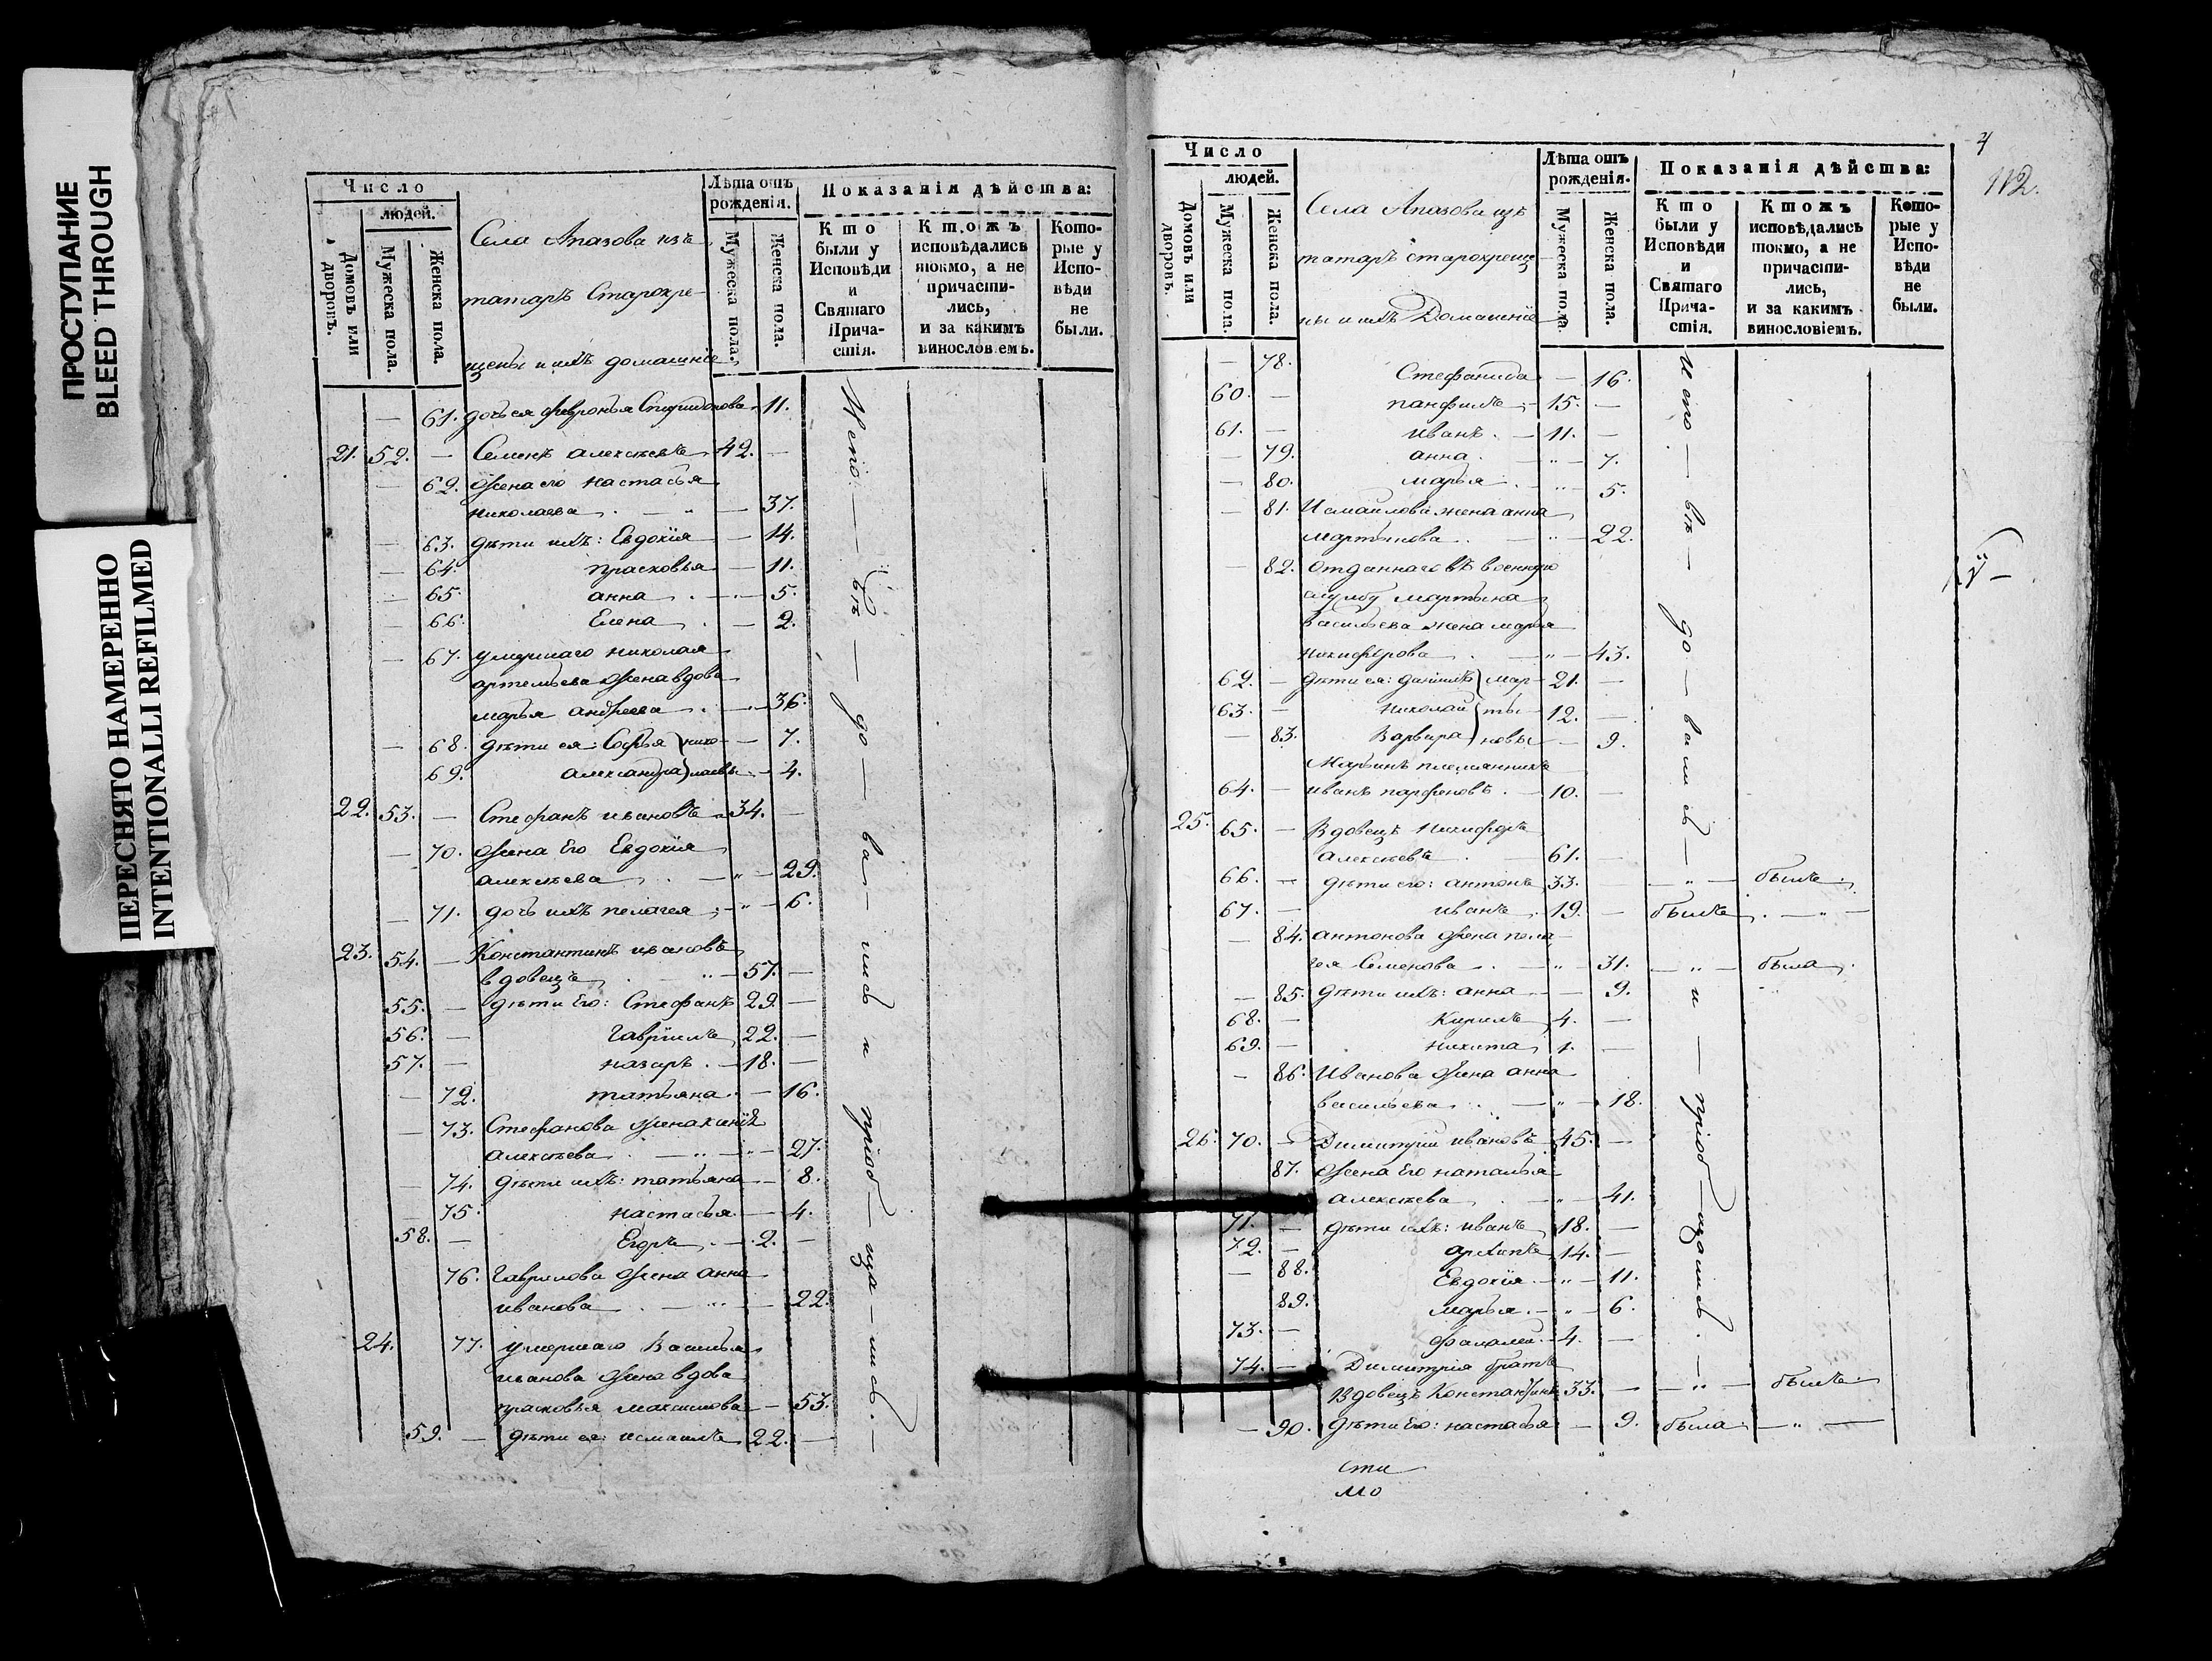 ПРОСТУПАНИЕ
BLEED THROUGH
ПЕРЕСНЯТО НАМЕРЕННО
INTENTIONALLI REFILMED
Число
людей.
Домовъ или дворовъ.
Мужеска пола.
Женска пола.
Села Апазова изъ
татаръ Старокре-
щены и ихъ домашніе
Лѣта отъ рожденія.
Мужеска пола.
Женска пола.
Показанія дѣйства:
Кто были у Исповѣди и Святаго Прича-стія.
Ктожъ исповѣдались токмо, а не причасти-лись, и за какимъ винословіемъ.
Кото-рые у Испо-вѣди не были.
— 61. дочь ея Февронья Спиридонова — 11.
21. 52. — Семенъ алексѣевъ 42. —
— 62. жена его настасья
николаева . — " — 37.
— 63. дѣти ихъ: Евдокія — 14.
— 64. прасковья — 11.
— 65. анна . — " — 5.
— 66. Елена . — 2.
— 67. умершаго николая
артемьева жена вдова
марья андреева . — " — 36.
— 68. дѣти ея: Софья } нико- — 7.
69. александра } лаевы — 4.
22. 53. — Стефанъ ивановъ 34. —
— 70. жена Его Евдокія
алексѣева . — " — 29.
— 71. дочь ихъ пелагея — " — 6.
23. 54. — Константинъ ивановъ
вдовецъ . " — 57. —
55. — дѣти Его: Стефанъ 29. —
56. — гаврiилъ 22. —
57. — назаръ . — 18. —
— 72. татьяна . — 16.
— 73. Стефанова жена
алексѣева . — " — " — 27.
— 74. дѣти ихъ: татьяна — 8.
— 75. настасья — 4.
58. — Егоръ . — 2. —
76. Гаврилова жена анна
иванова . — " — 22.
24. 77. умершаго Василья
иванова жена вдова
прасковья максимова — 53.
59. — дѣти ея: исмаилъ 22. —
Испо — вѣ — до — ва — лись и пріоб — ща — лись. —
4
112.
Число
людей.
Домовъ или дворовъ.
Мужеска пола.
Женска пола.
Села Апазова изъ
татаръ старокрещ
ны и ихъ Домашніе
Лѣта отъ рожденія.
Мужеска пола.
Женска пола.
Показанія дѣйства:
Кто были у Исповѣди и Святаго Прича-стія.
Ктожъ исповѣдались токмо, а не причасти-лись, и за какимъ винословіемъ.
Кото-рые у Испо-вѣди не были.
— 78. Стефанида — 16.
60. — панфилъ — 15. —
61. — иванъ . — 11. —
— 79. анна . — " — 7.
— 80. марья . — " — 5.
— 81. Исмаилова жена анна
мартынова . — " — 22.
— 82. Отданнаго въ военную
службу мартына
васильева жена марья
никифорова . — " — 43.
62. — дѣти ея: даниилъ } мар- 21. —
63. — николай } ты- 12. —
— 83. Варвара } новы — 9.
Марьинъ племянникъ
64. — иванъ парфеновъ . — 10. —
25. 65. — Вдовецъ никифоръ
алексѣевъ . — 61. —
66. — дѣти его: антонъ 33. — — " — былъ.
67. — иванъ . 19. — былъ . — " —
— 84. антонова жена пела-
гея Семенова . — " — 31. — " — была.
— 85. дѣти ихъ: анна — 9.
68. — Кирилъ 4. —
69. — никита 1. —
— 86. Иванова жена анна
васильева . — " — 18.
26. 70. — Димитрій ивановъ 45. —
87. жена Его наталья
алексѣева . — " — 41.
71. — дѣти ихъ: иванъ 18. —
72. — архипъ 14. —
— 88. Евдокія — " — 11.
89. марья . — " — 6.
73. — фалалей — 4. —
74. — Димитрія братъ
Вдовецъ Константинъ 33. — — " — былъ.
— 90. дѣти Его: настасья — 9. была — " —
Испо — вѣ — до — вались — и — пріоб — щались. —
сти
мо